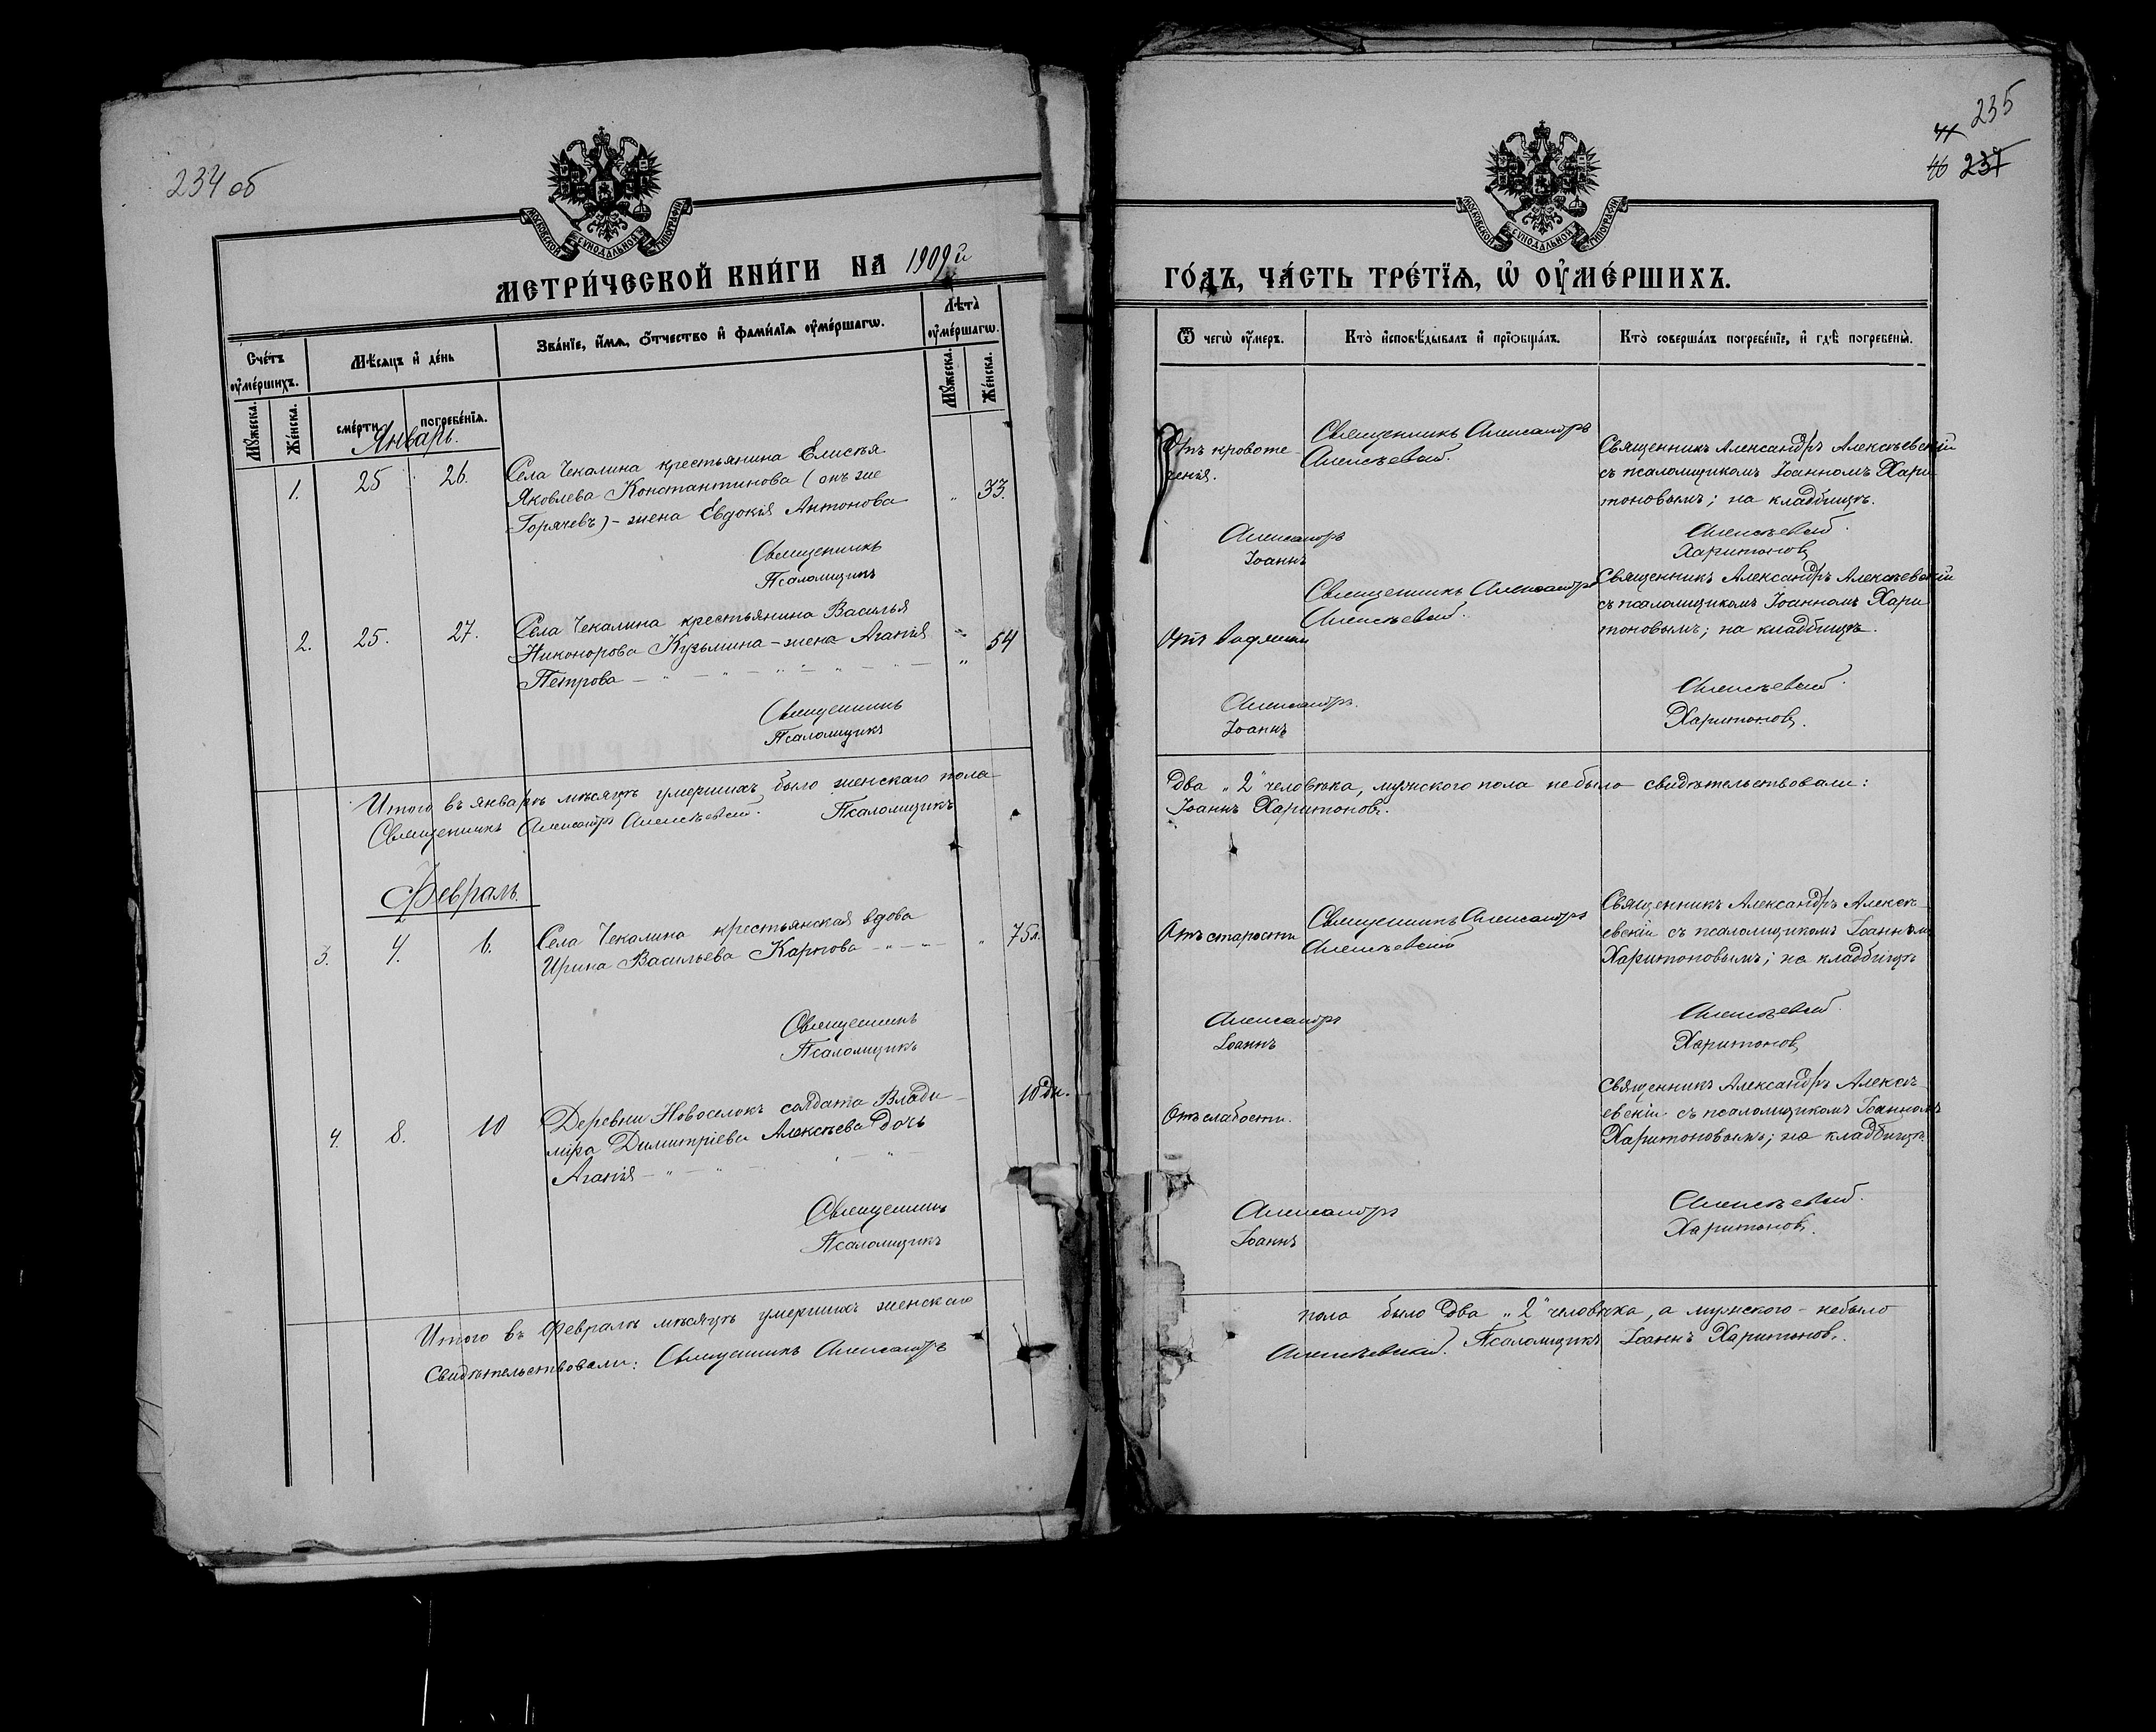 234 об
МОСКОВСКОЙ СѴНОДАЛЬНОЙ ТИПОГРАФІИ
МЕТРИ́ЧЕСКОЙ КНИ́ГИ НА 1909 й
Сче́тъ ᲂу҆ме́ршихъ.
Мѣ́сяцъ и҆ де́нь
Зва́нїе, и҆́мѧ, ѻ҆́тчество и҆ фами́лїѧ ᲂу҆ме́ршагѡ.
Лѣ̀та ᲂу҆ме́ршагѡ.
Мꙋ́жеска.
Же́нска.
сме́рти.
погребе́нїѧ.
Мꙋ́жеска.
Же́нска.
Январь.
1. 25 26. Села Чекалина крестьянина Елисѣя
Яковлева Константинова (онъ же
Горячевъ) - жена Евдокія Антонова " 33.
Священникъ
Псаломщикъ
2. 25. 27. Села Чекалина крестьянина Василья
Никонорова Кузьмина - жена Агапія " 54
Петрова — " — " — " — " — " — "
Священникъ
Псаломщикъ
Итого въ январѣ мѣсяцѣ умершихъ было женскаго пола
Священникъ Александръ Алексѣевскій. Псаломщикъ
Февраль.
3. 4. 6. Села Чекалина крестьянская вдова
Ирина Васильева Карпова - " - - " 75 л.
Священникъ
Псаломщикъ
4. 8. 10 Деревни Новоселокъ солдата Влади- 10 дн.
міра Димитріева Алексѣева дочь
Агапія — " — " — " — " —
Священникъ
Псаломщикъ
Итого въ Февралѣ мѣсяцѣ умершихъ женскаго
Свидѣтельствовали: Священникъ Александръ
235
237
МОСКОВСКОЙ СѴНОДАЛЬНОЙ ТИПОГРАФІИ
ГО́ДЪ, ЧА́СТЬ ТРЕ́ТЇѦ, Ѡ҆ ОУ҆МЕ́РШИХЪ.
Ѿ чегѡ̀ ᲂу҆́меръ.
Кто̀ и҆сповѣ́дывалъ и҆ прїѡбща́лъ.
Кто̀ соверша́лъ погребе́нїе, и҆ гдѣ̀ погребены̀.
Отъ кровоте-
ченія.
Священникъ Александръ
Алексѣевскій.
Священникъ Александръ Алексѣевскій
съ псаломщикомъ Іоанномъ Хари
тоновымъ; на кладбищѣ.
Александръ Алексѣевскій.
Іоаннъ Харитоновъ
Священникъ Александръ
Алексѣевскій.
Священникъ Александръ Алексѣевскій
съ псаломщикомъ Іоанномъ Хари
тоновымъ; на кладбищѣ.
Александръ. Алексѣевскій.
Іоаннъ Харитоновъ.
Два „2" человѣка, мужского пола не было свидѣтельствовали:
Іоаннъ Харитоновъ.
Отъ старости
Священникъ Александръ
Алексѣевскій
Священникъ Александръ Алексѣ-
евскій съ псаломщикомъ Іоанномъ
Харитоновымъ; на кладбищѣ
Александръ Алексѣевскій.
Іоаннъ Харитоновъ
Отъ слабости.
Священникъ Александръ Алексѣ-
евскій съ псаломщикомъ Іоанномъ
Харитоновымъ; на кладбищѣ.
Александръ Алексѣевскій.
Іоаннъ Харитоновъ.
пола было два „2" человѣка, а мужского - небыло
Алексѣевскій. Псаломщикъ Іоаннъ Харитоновъ.